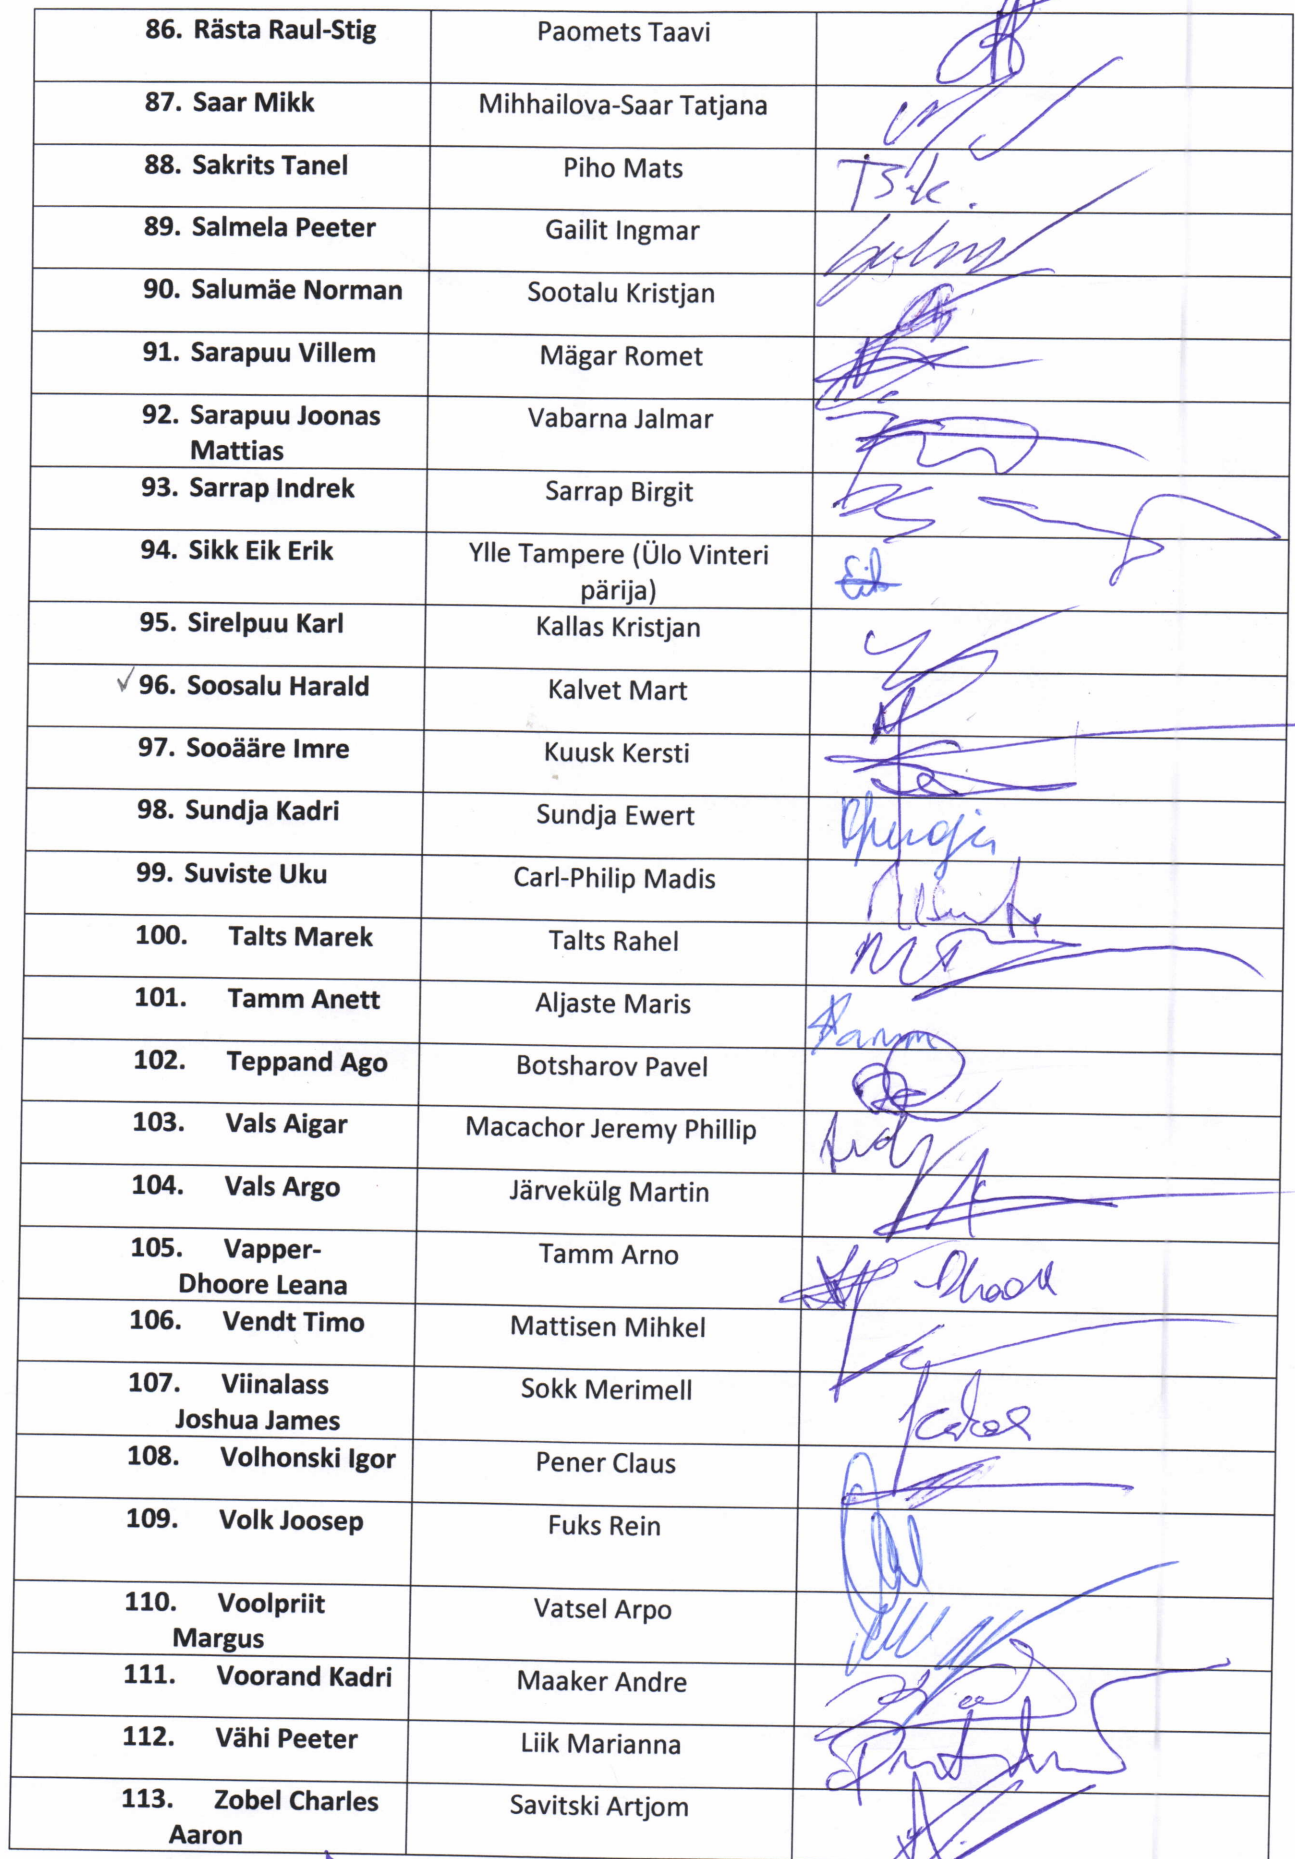 86. Rästa Raul-Stig Paomets Taavi
87. Saar Mikk Mihhailova-Saar Tatjana
88. Sakrits Tanel Piho Mats
89. Salmela Peeter Gailit Ingmar
90. Salumäe Norman Sootalu Kristjan
91. Sarapuu Villem Mägar Romet
92. Sarapuu Joonas Vabarna Jalmar
Mattias
93. Sarrap Indrek Sarrap Birgit
94. Sikk Eik Erik Ylle Tampere (Ülo Vinteri
pärija)
95. Sirelpuu Karl Kallas Kristjan
96. Soosalu Harald Kalvet Mart
97. Sooääre Imre Kuusk Kersti
98. Sundja Kadri Sundja Ewert
99. Suviste Uku Carl-Philip Madis
100. Talts Marek Talts Rahel
101. Tamm Anett Aljaste Maris
102. Teppand Ago Botsharov Pavel
103. Vals Aigar Macachor Jeremy Phillip
104. Vals Argo Järvekülg Martin
105. Vapper- Tamm Arno
Dhoore Leana
106. Vendt Timo Mattisen Mihkel
107. Viinalass Sokk Merimell
Joshua James
108. Volhonski Igor Pener Claus
109. Volk Joosep Fuks Rein
110. Voolpriit Vatsel Arpo
Margus
111. Voorand Kadri Maaker Andre
112. Vähi Peeter Liik Marianna
113. Zobel Charles Savitski Artjom
Aaron